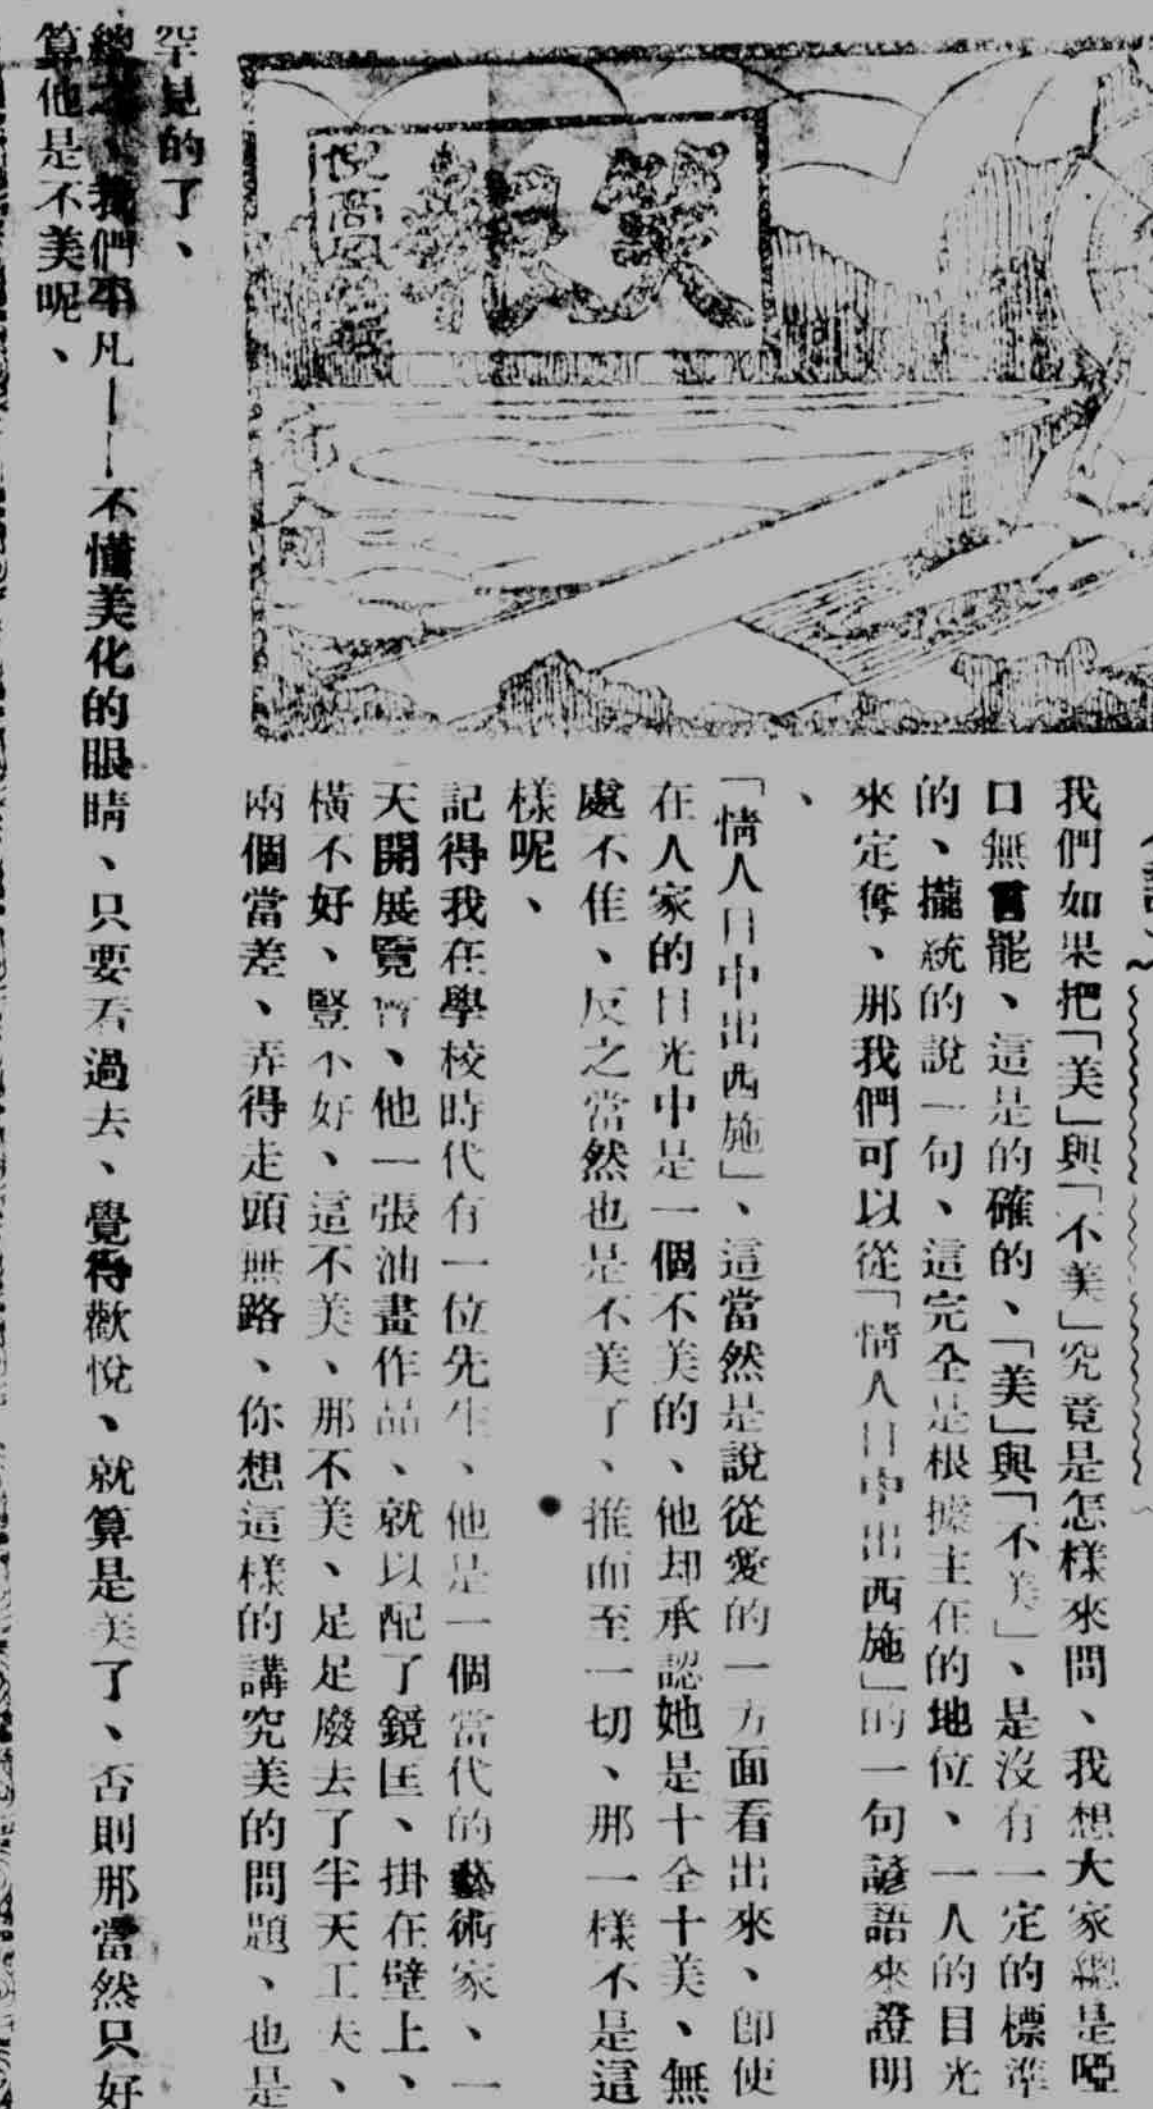 我們如果把「美」與「不美」究竟是怎樣來問、我想大家總是啞
口無言罷、這是的確的、「美」與「不美」、是沒有一定的標準
的、攏統的說一句、這完全是根據主在的地位、一人的目光
來定奪、那我們可以從「情人目中出西施」的一句諺語來證明
、
「情人目中出西施」、這當然是說從愛的一方面看出來、卽使
在人家的目光中是一個不美的、他却承認她是十全十美、無
處不佳、反之當然也是不美了、推而至一切、那一樣不是這
樣呢、
記得我在學校時代有一位先生、他是一個當代的藝術家、一
天開展覽會、他一張油畫作品、就以配了鏡匡、掛在壁上、
橫不好、豎不好、這不美、那不美、足足廢去了半天工夫、
兩個當差、弄得走頭無路、你想這樣的講究美的問題、也是
罕見的了、
總之、我們平凡——不懂美化的眼睛、只要看過去、覺得歡悅、就算是美了、否則那當然只好
算他是不美呢、